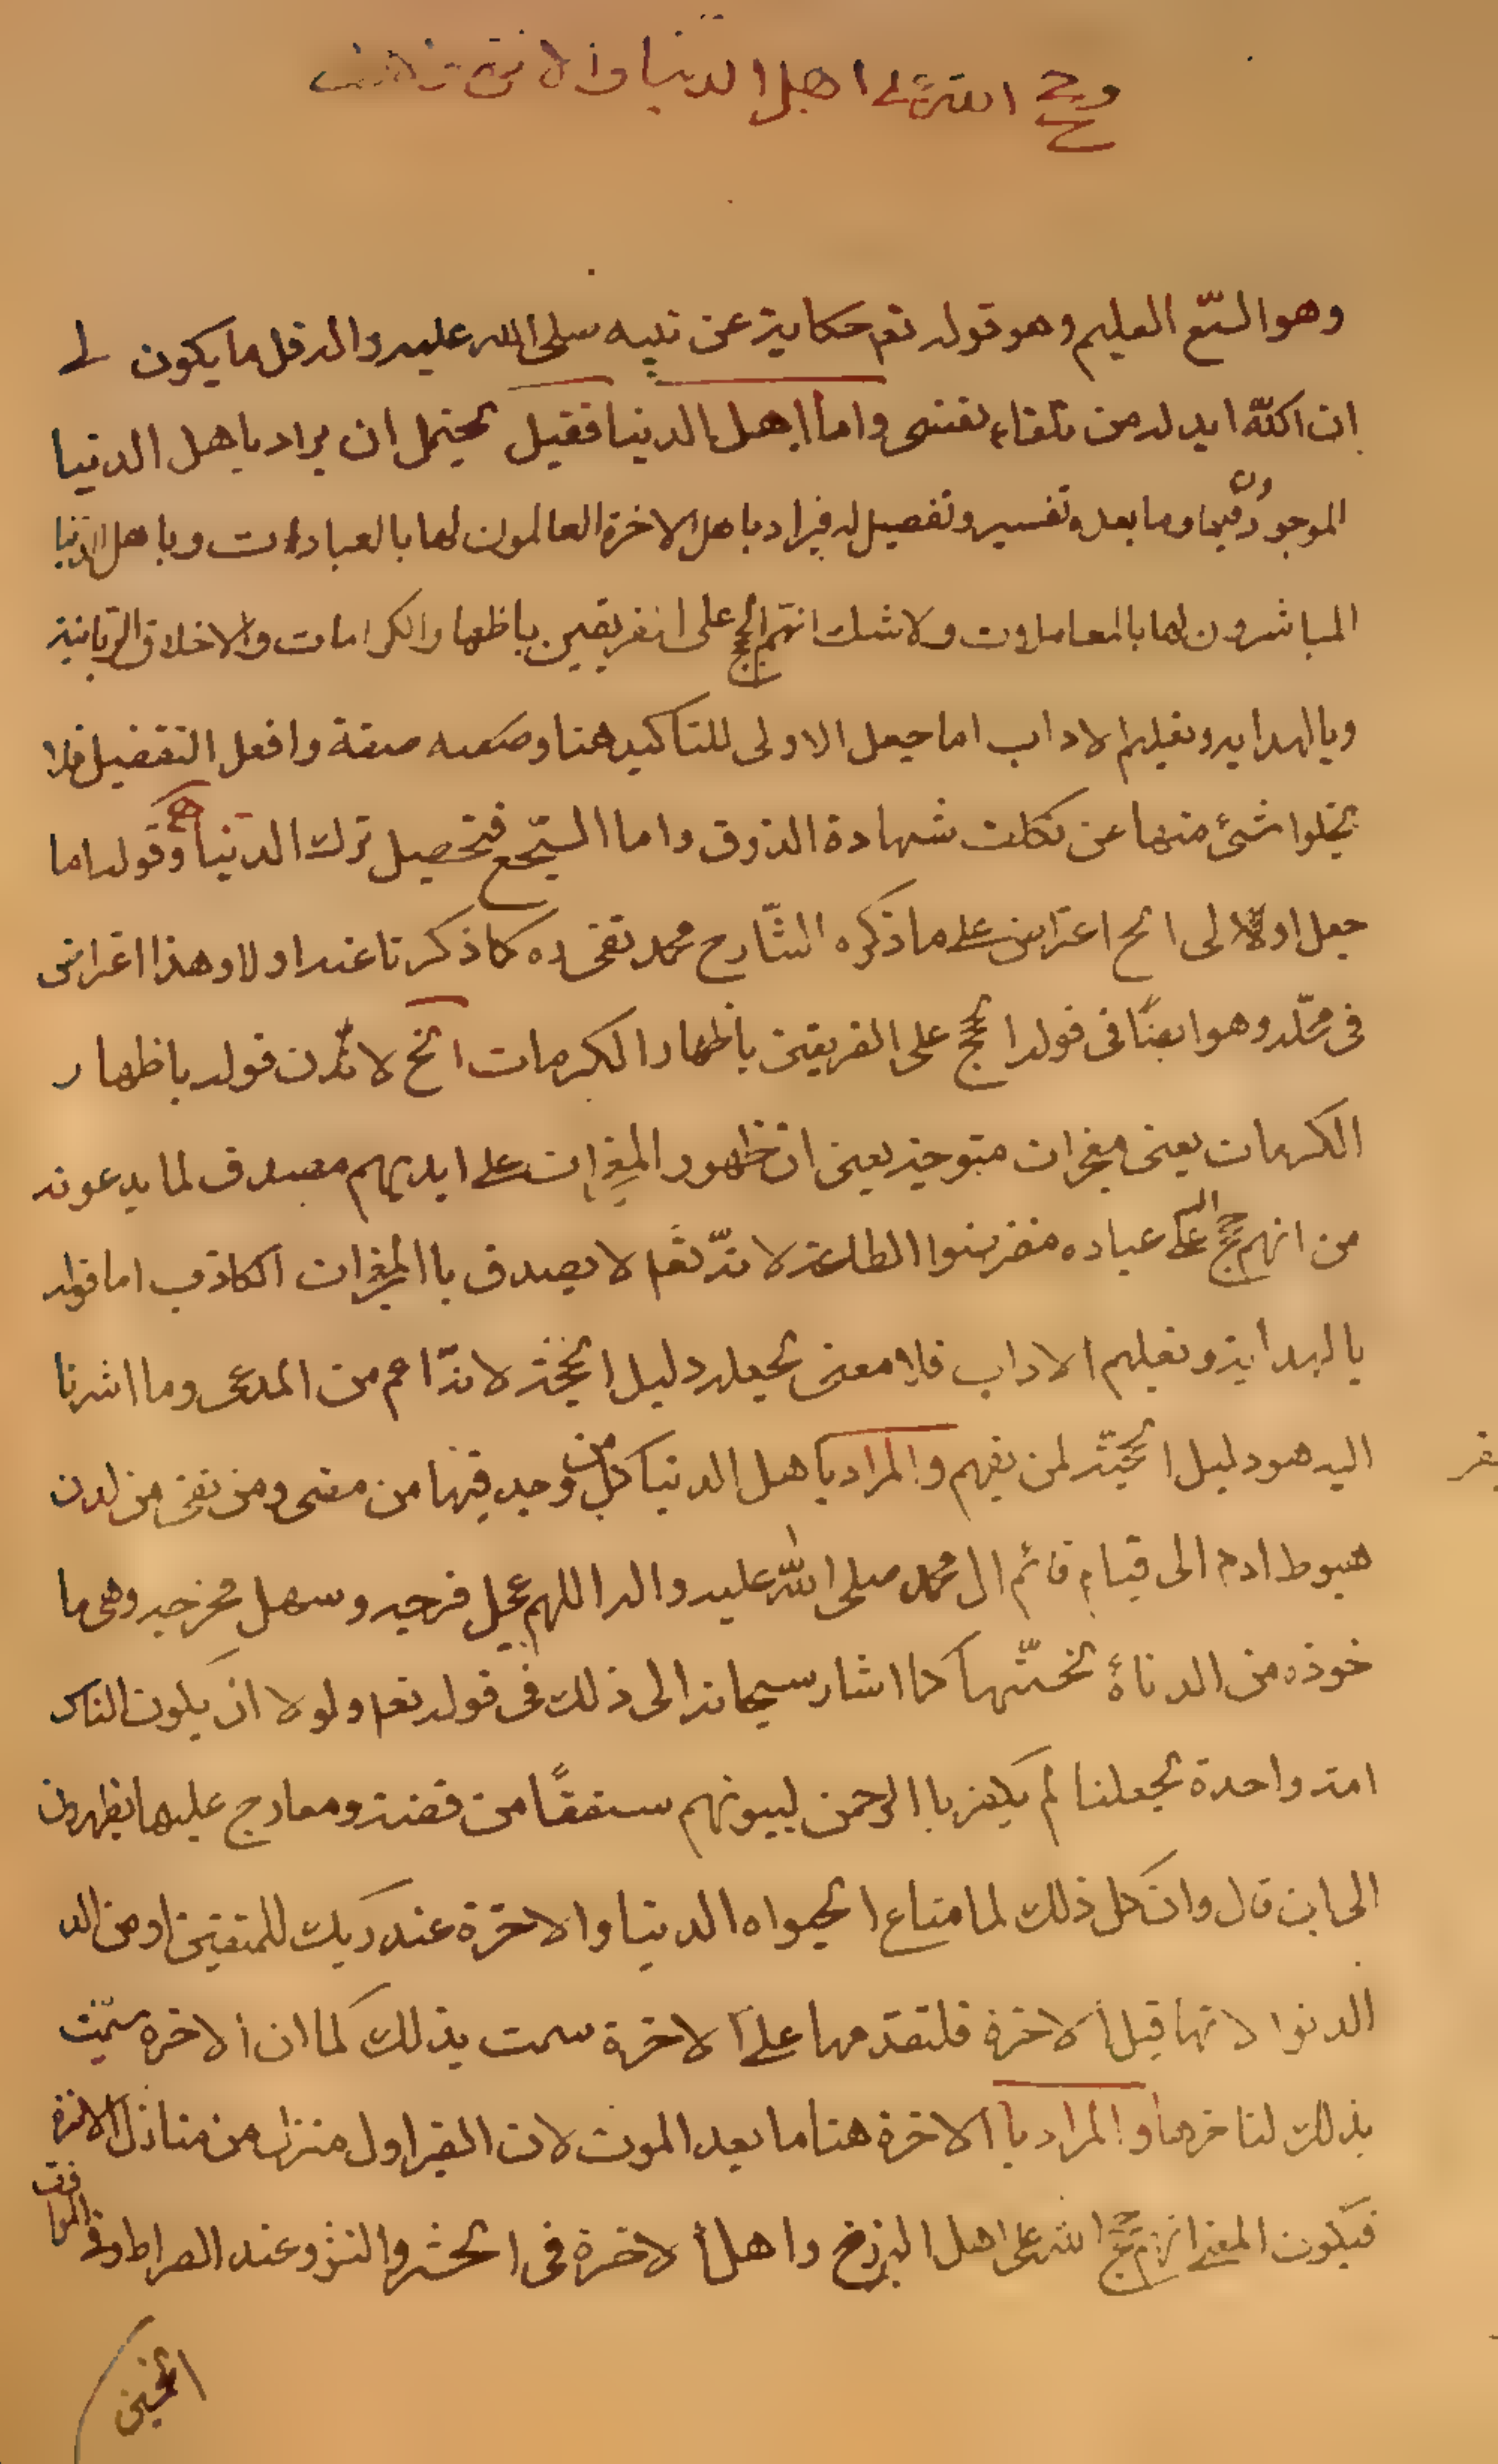 وحجج الله على اهل الدنيا والاخرة
وهو السميع العليم وهو قوله تعم حكاية عن نبيه صلى الله عليه واله قل ما يكون لى
ان ابدله من تلقاء نفسى واما اهل الدنيا فقيل يحتمل ان يراد باهل الدنيا
الموجودون فيها وما بعده تفسير وتفصيل له فيراد باهل الاخرة العالمون لها بالعبادات وباهل الدنيا
المباشرون لها بالمعاملات ولا شك انهم الحجج على الفريقين باظهار الكرامات والاخلاق الربانية
وبالهداية وتعليم الاداب اما جعل الاولى للتاكيد هنا وضعه صفة وافعل التفضيل فلا
يخلوا شئ منها عن تكلف شهادة الذوق واما السجع فتحصيل ترك الدنيا وقوله اما
جعل اولا لى الخ اعتراض على ما ذكره الشارح محمد تقى ره كما ذكرنا عنه اولا وهذا اعتراض
فى محله وهو ايضا فى قوله الحجج على الفريقين باظهار الكرمات الخ لا قوله باظهار
الكرمات يعنى معجزات متوجه يعنى ان ظهور المعجزات على ايديهم مصدق لما يدعونه
من انهم حجج الله على عباده الطاعة لانه تعم لا يصدق باالمعجزات الكاذب اما قوله
بالهداية وتعليم الاداب فلا معنى لجعله دليل الحجة لانه اعم من المدعى وما اشرنا
اليه هو دليل الحجية لمن يفهم والمراد باهل الدنيا كل من وجد فيها من مضى ومن بقى من لدن
هبوط ادم الى قيام قائم ال محمد صلى الله عليه واله اللهم عجل فرجه وسهل مخرجه وهى ما
خوذه من الدناءة لخستها كما اشار سبحانه الى ذلك فى قوله تعم ولولا ان يكون الناس
امة واحدة لجعلنا لم يكفر باالرحمن لبيوتهم سقفًا من فضة ومعارج عليها يظهرون
الى ان قال وان كل ذلك لما متاع الحيواه الدنيا والاخرة عند ربك للمتقين او من الد
الدنوا لانها قبل الاخرة فلتقدمها على الاخرة سمت بذلك كما ان الاخرة سميت
بذلك لتاخرها والمراد باالاخرة هنا ما بعد الموت لان القبر اول منزل من منازل الاخرة
فيكون المعنى انهم حجج الله على اهل البرزخ واهل الاخرة فى الحشر والنشر وعند الصراط وفى المواقف